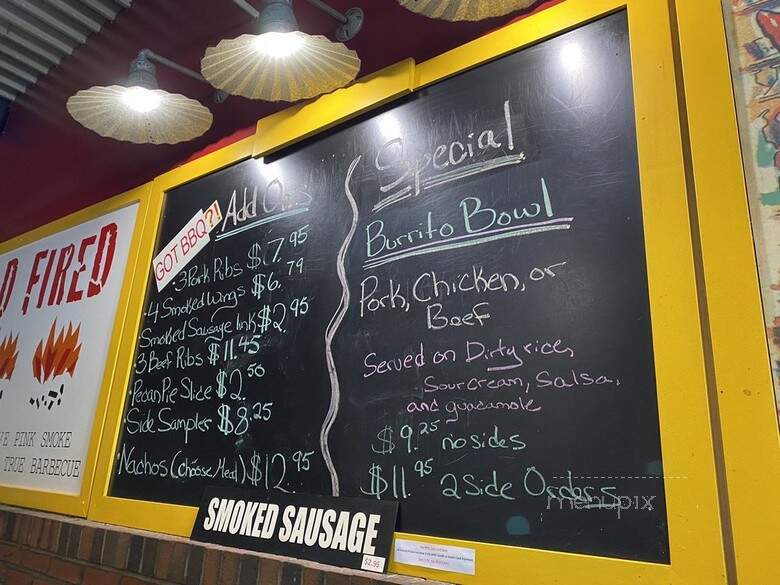 D FIRED
VE PINK SMOKE
TRUE BARBECUE
GOT BBQ?!
Add Ons
• 3 Pork Ribs $7.95
• 4 Smoked Wings $6.79
Smoked Sausage link $2.95
• 3 Beef Ribs $11.45
• Pecan Pie Slice $2.50
• Side Sampler $8.25
• Nachos (choose Meat) $12.95
Special
Burrito Bowl
Pork, Chicken, or
Beef
Served on Dirty rice,
Sour cream, Salsa,
and guacamole
$9.25 no sides
$11.95 2 Side Orders
menupix
SMOKED SAUSAGE
$2.95